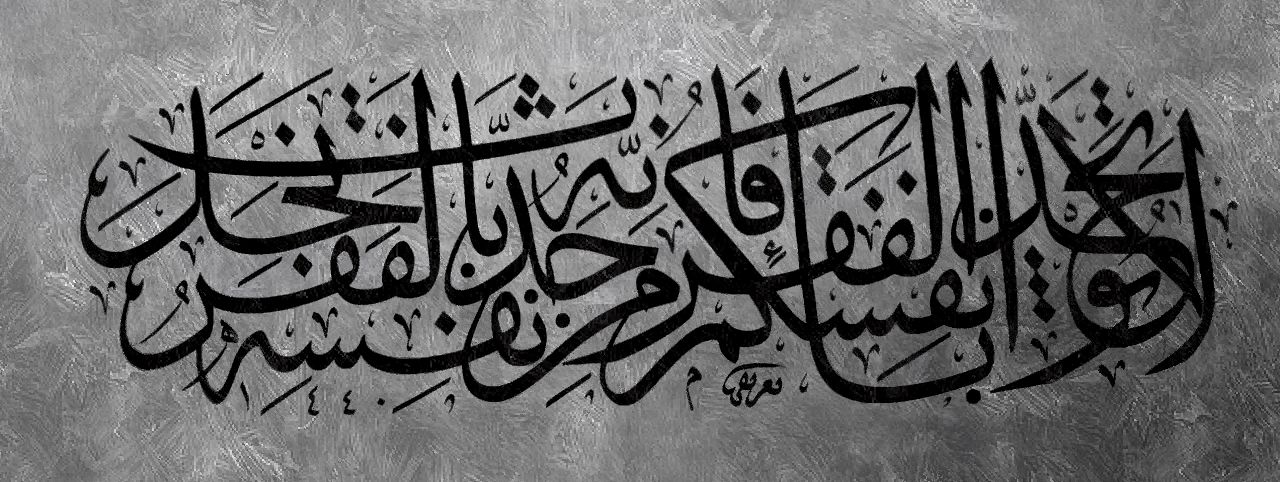 لا تحدثوا انفسكم بالفقر فإنه من حدث نفسه بالفقر بخل
١٤٤٠